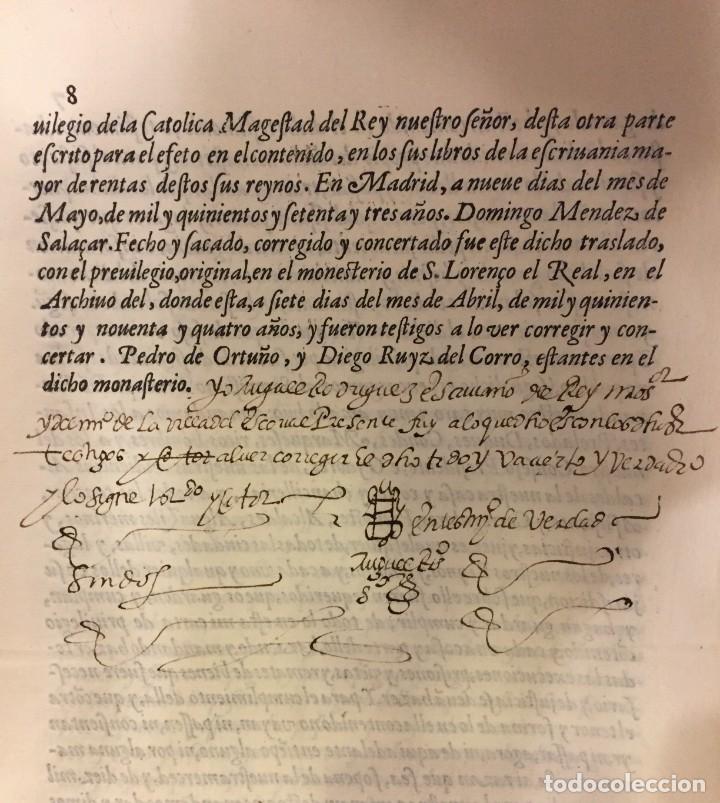 8
uilegio de la Catolica Magestad del Rey nuestro señor, desta otra parte
escrito para el efeto en el contenido, en los sus libros de la escriuania ma-
yor de rentas destos sus reynos. En Madrid, a nueue dias del mes de
Mayo, de mil y quinientos y setenta y tres años. Domingo Mendez de
Salaçar. Fecho y sacado, corregido y concertado fue este dicho traslado,
con el preuilegio, original, en el monesterio de S. Lorenço el Real, en el
Archiuo del, donde esta, a siete dias del mes de Abril, de mil y quinien-
tos y nouenta y quatro años, y fueron testigos a lo ver corregir y con-
certar. Pedro de Ortuño, y Diego Ruyz del Corro, estantes en el
dicho monasterio. Yo Rodriguez escriuano del Rey nro s.or
de la villa del Escorial Presente fuy a lo que dho es con los dhos
testigos al ver corregir y va cierto y verdadero
y lo signe
en testim.o de verdad
todocoleccion